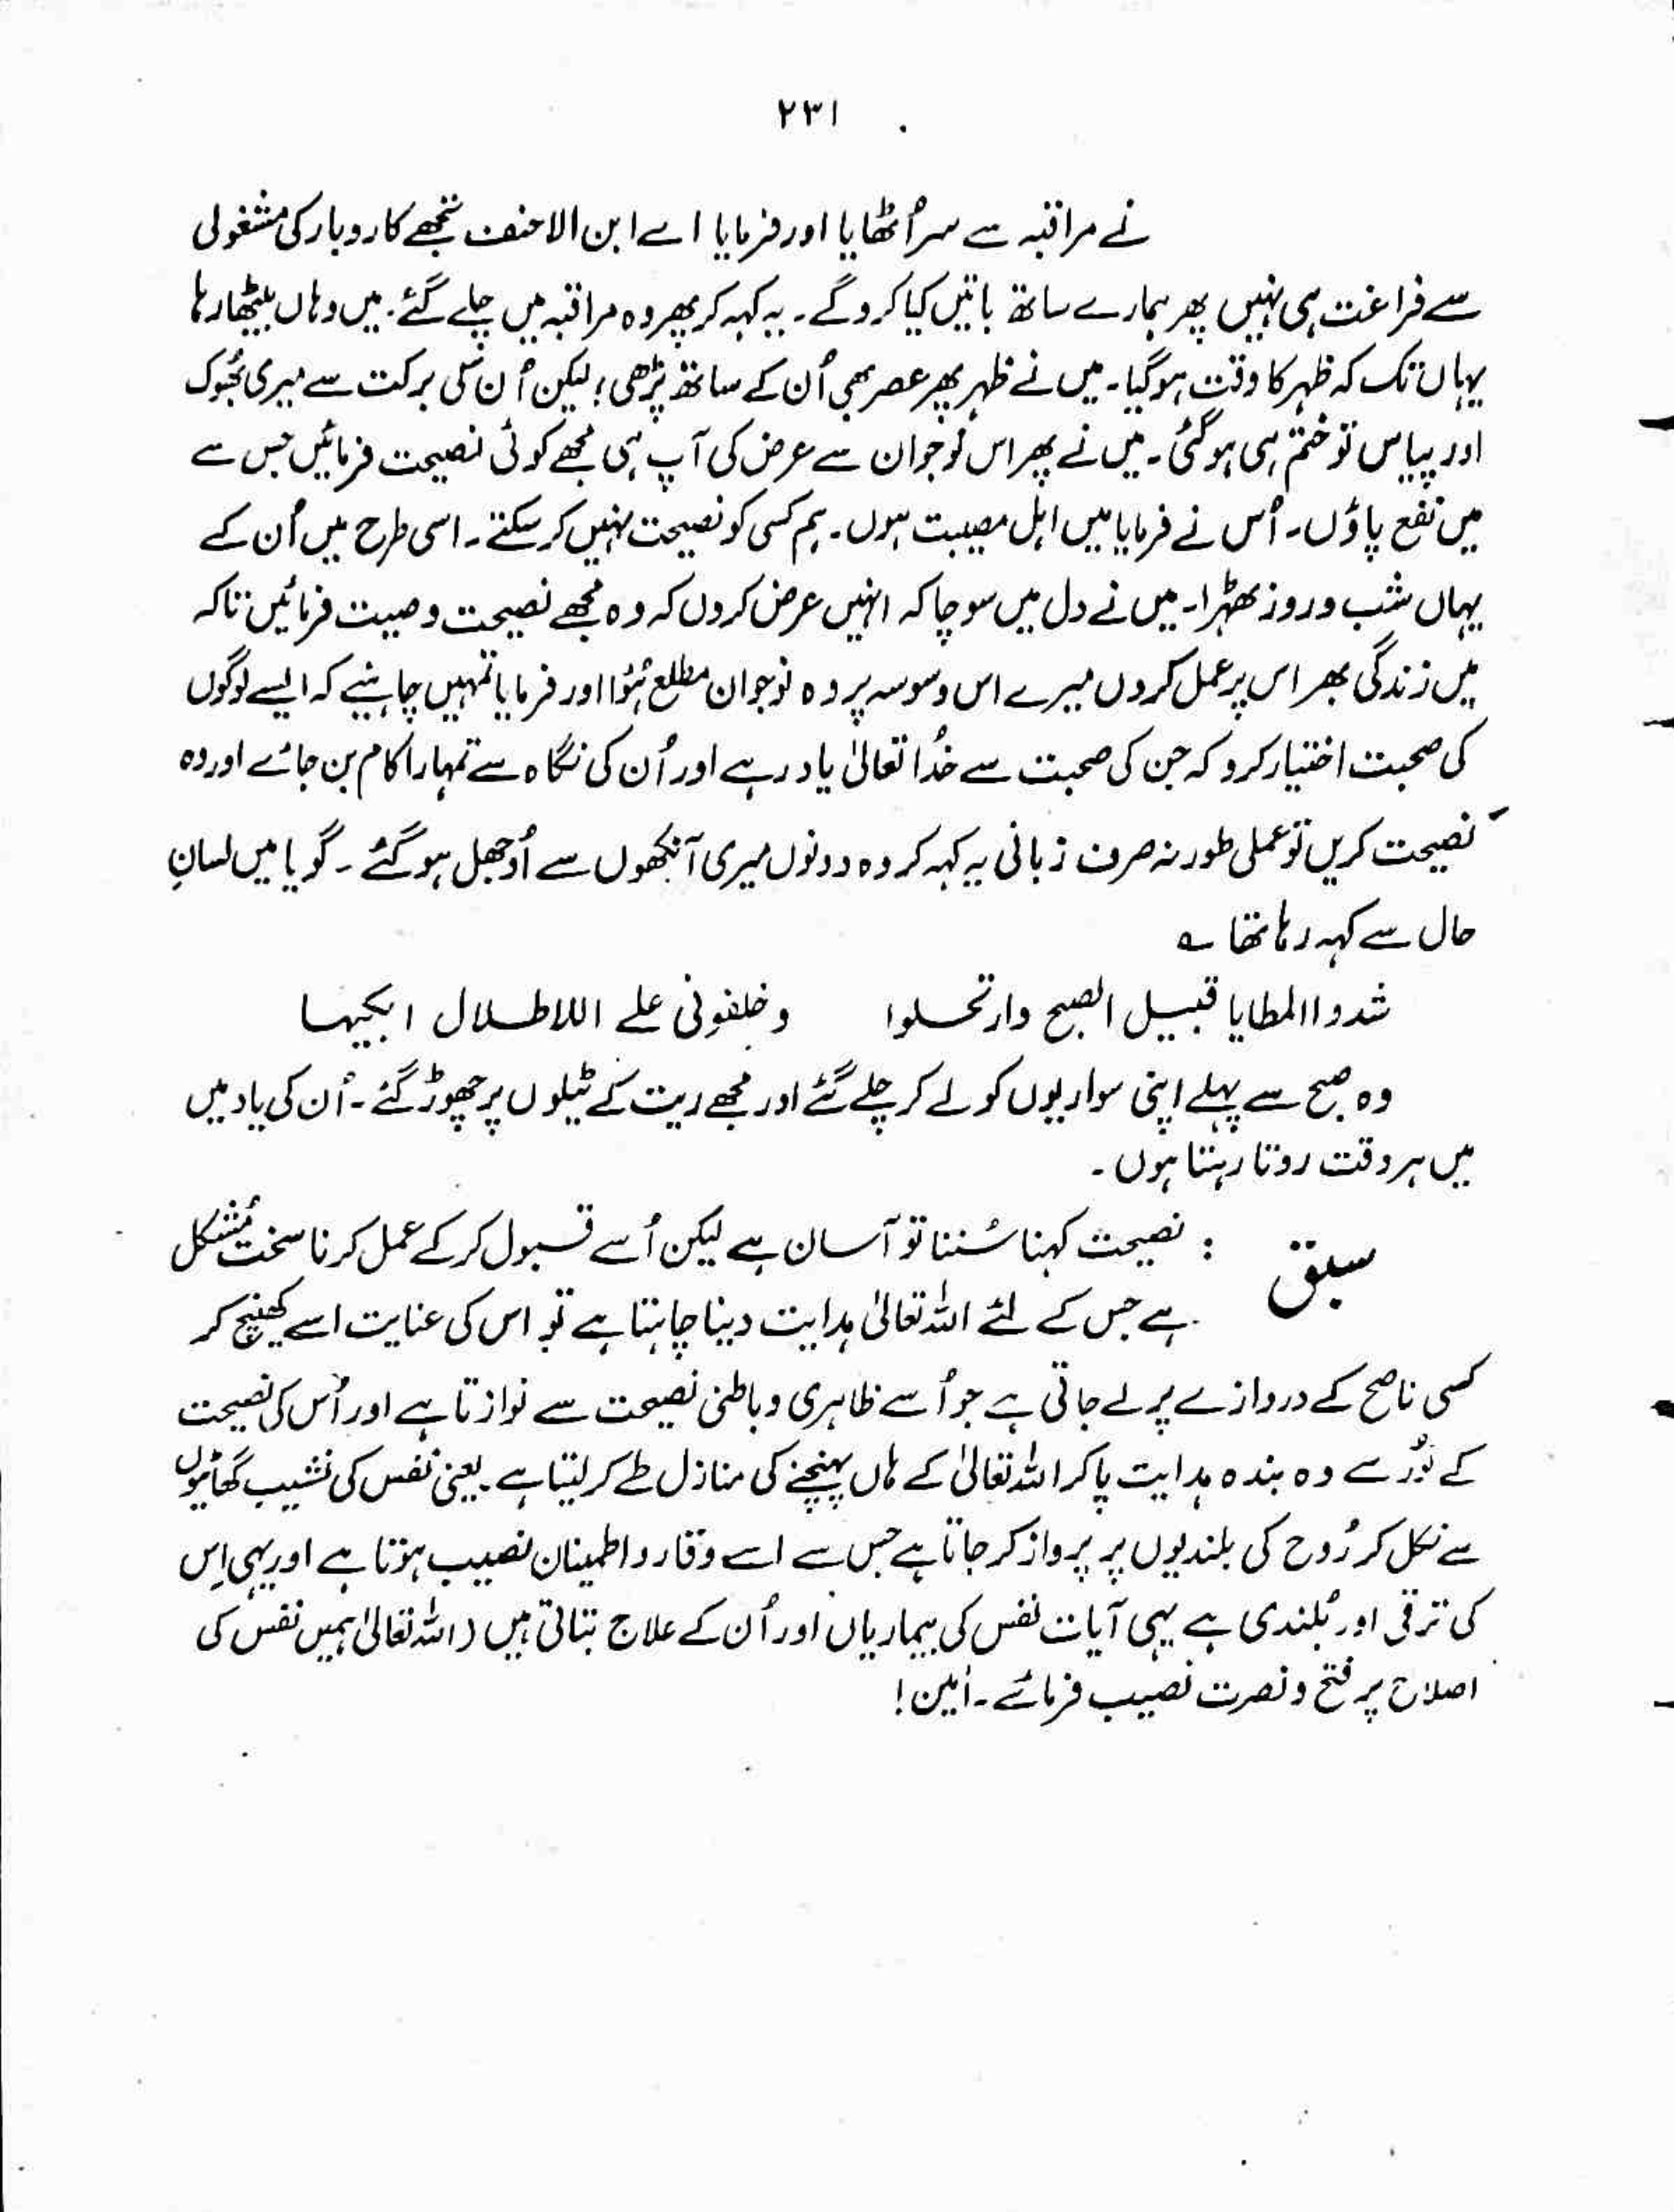 ۲۳۱
نے مراقبہ سے سر اُٹھایا اور فرمایا اے ابن الاحنف تجھے کاروبار کی مشغولی
سے فراغت ہی نہیں پھر ہمارے ساتھ باتیں کیا کرو گے۔ یہ کہہ کر پھر وہ مراقبہ میں چلے گئے۔ میں وہاں بیٹھا رہا
یہاں تک کہ ظہر کا وقت ہوگیا۔ میں نے ظہر پھر عصر بھی اُن کے ساتھ پڑھی؛ لیکن اُن کی برکت سے میری بُھوک
اور پیاس تو ختم ہی ہوگئی۔ میں نے پھر اس نوجوان سے عرض کی آپ ہی مجھے کوئی نصیحت فرمائیں جس سے
میں نفع پاؤں۔ اُس نے فرمایا میں اہل مصیبت ہوں۔ ہم کسی کو نصیحت نہیں کر سکتے۔ اسی طرح میں اُن کے
یہاں شب و روز ٹھہرا۔ میں نے دل میں سوچا کہ انہیں عرض کروں کہ وہ مجھے نصیحت وصیت فرمائیں تاکہ
میں زندگی بھر اس پر عمل کروں میرے اس وسوسہ پر وہ نوجوان مطلع ہُوا اور فرمایا تمہیں چاہئیے کہ ایسے لوگوں
کی صحبت اختیار کرو کہ جن کی صحبت سے خُدا تعالیٰ یاد رہے اور اُن کی نگاہ سے تمہارا کام بن جائے اور وہ
نصیحت کریں تو عملی طور نہ صرف زبانی یہ کہہ کر وہ دونوں میری آنکھوں سے اُوجھل ہو گئے۔ گویا میں لسانِ
حال سے کہہ رہا تھا ؎
شدوا المطایا قبیل الصبح وارتحلوا وخلفونی علے اللاطلال ابکیہا
وہ صبح سے پہلے اپنی سواریوں کو لے کر چلے گئے اور مجھے ریت کے ٹیلوں پر چھوڑ گئے۔ اُن کی یاد میں
میں ہر وقت روتا رہتا ہوں۔
سبق : نصیحت کہنا سُننا تو آسان ہے لیکن اُسے قبول کر کے عمل کرنا سخت مُشکل
ہے جس کے لئے اللہ تعالیٰ ہدایت دینا چاہتا ہے تو اس کی عنایت اسے کھینچ کر
کسی ناصح کے دروازے پر لے جاتی ہے جو اُسے ظاہری و باطنی نصیحت سے نوازتا ہے اور اُس کی نصیحت
کے نُور سے وہ بندہ ہدایت پا کر اللہ تعالیٰ کے ہاں پہنچنے کی منازل طے کر لیتا ہے۔ یعنی نفس کی نشیب گھاٹیوں
سے نکل کر رُوح کی بلندیوں پر پرواز کر جاتا ہے جس سے اسے وقار و اطمینان نصیب ہوتا ہے اور یہی اِس
کی ترقی اور بُلندی ہے یہی آیات نفس کی بیماریاں اور اُن کے علاج بتاتی ہیں (اللہ تعالیٰ ہمیں نفس کی
اصلاح پر فتح و نصرت نصیب فرمائے۔ اٰمین!